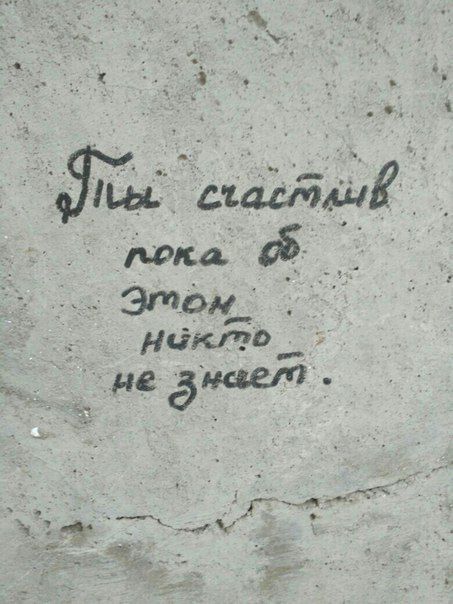 Ты счастлив
пока об
этом
никто
не знает.